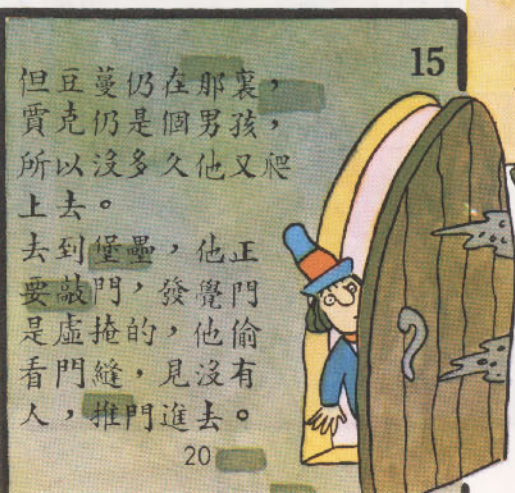 15
但豆蔓仍在那裏，
賈克仍是個男孩，
所以沒多久他又爬
上去。
去到堡壘，他正
要敲門，發覺門
是虛掩的，他偷
看門縫，見沒有
人，推門進去。
20